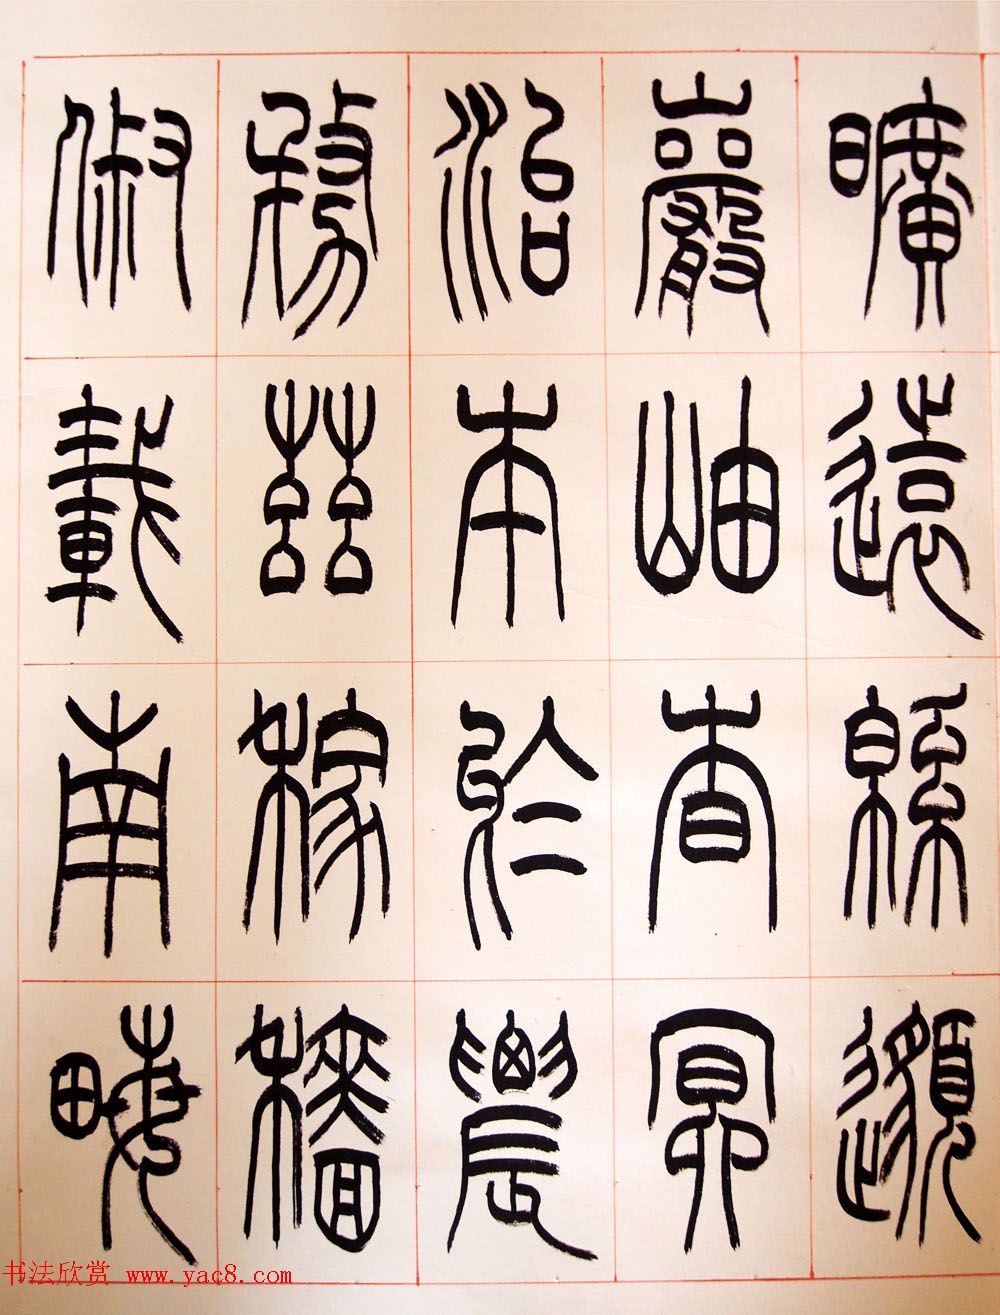 曠遠緜邈
巖岫杳冥
治本於農
務茲稼穡
俶載南畮
书法欣赏 www.yac8.com